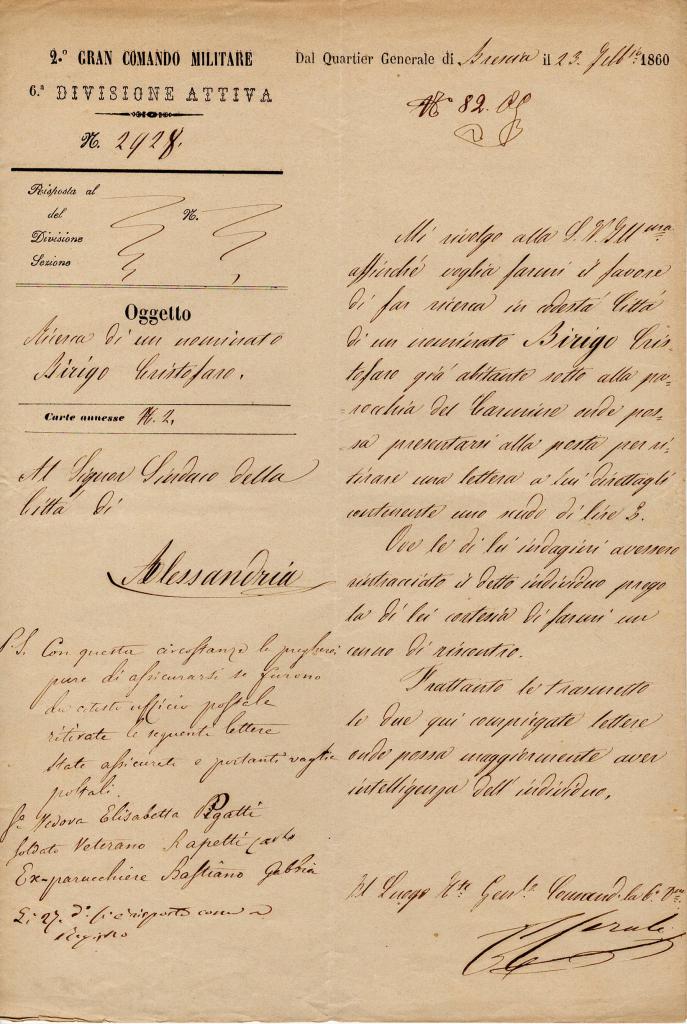 2.º GRAN COMANDO MILITARE
6.ª DIVISIONE ATTIVA
N. 2928.
Risposta al
del N.
Divisione
Sezione
Oggetto
Ricerca di un nominato
Birigo Cristofaro.
Carte annesse N. 2.
Al Signor Sindaco della
Città di
Alessandria
P.S. Con questa circostanza le pregherei
pure di assicurarsi se furono
da codesto ufficio postale
ritirate le seguenti lettere
state assicurate e portanti vaglia
postali.
Vedova Elisabetta Pigatti
Soldato Veterano Rapetti Carlo
Ex-parucchiere Bastiano Gabria
Li 27 d.º si è risposto come a
registro
Dal Quartier Generale di Brescia il 23. Febb.io 1860
N.º 82.
Mi rivolgo alla S. V. Ill.ma
affinché voglia farmi il favore
di far ricerca in codesta Città
di un nominato Birigo Cris-
tofaro già abitante sotto alla pa-
rocchia del Carmine onde pos-
sa presentarsi alla posta per ri-
tirare una lettera a lui direttagli
contenente uno scudo di lire 5.
Ove le di lei indagini avessero
rintracciato il detto individuo prego
la di lei cortesia di farmi un
cenno di riscontro.
Frattanto le trasmetto
le due qui compiegate lettere
onde possa maggiormente aver
intelligenza dell'individuo.
Il Luogo Tte Gen.le Comand. la 6.ª D.ne